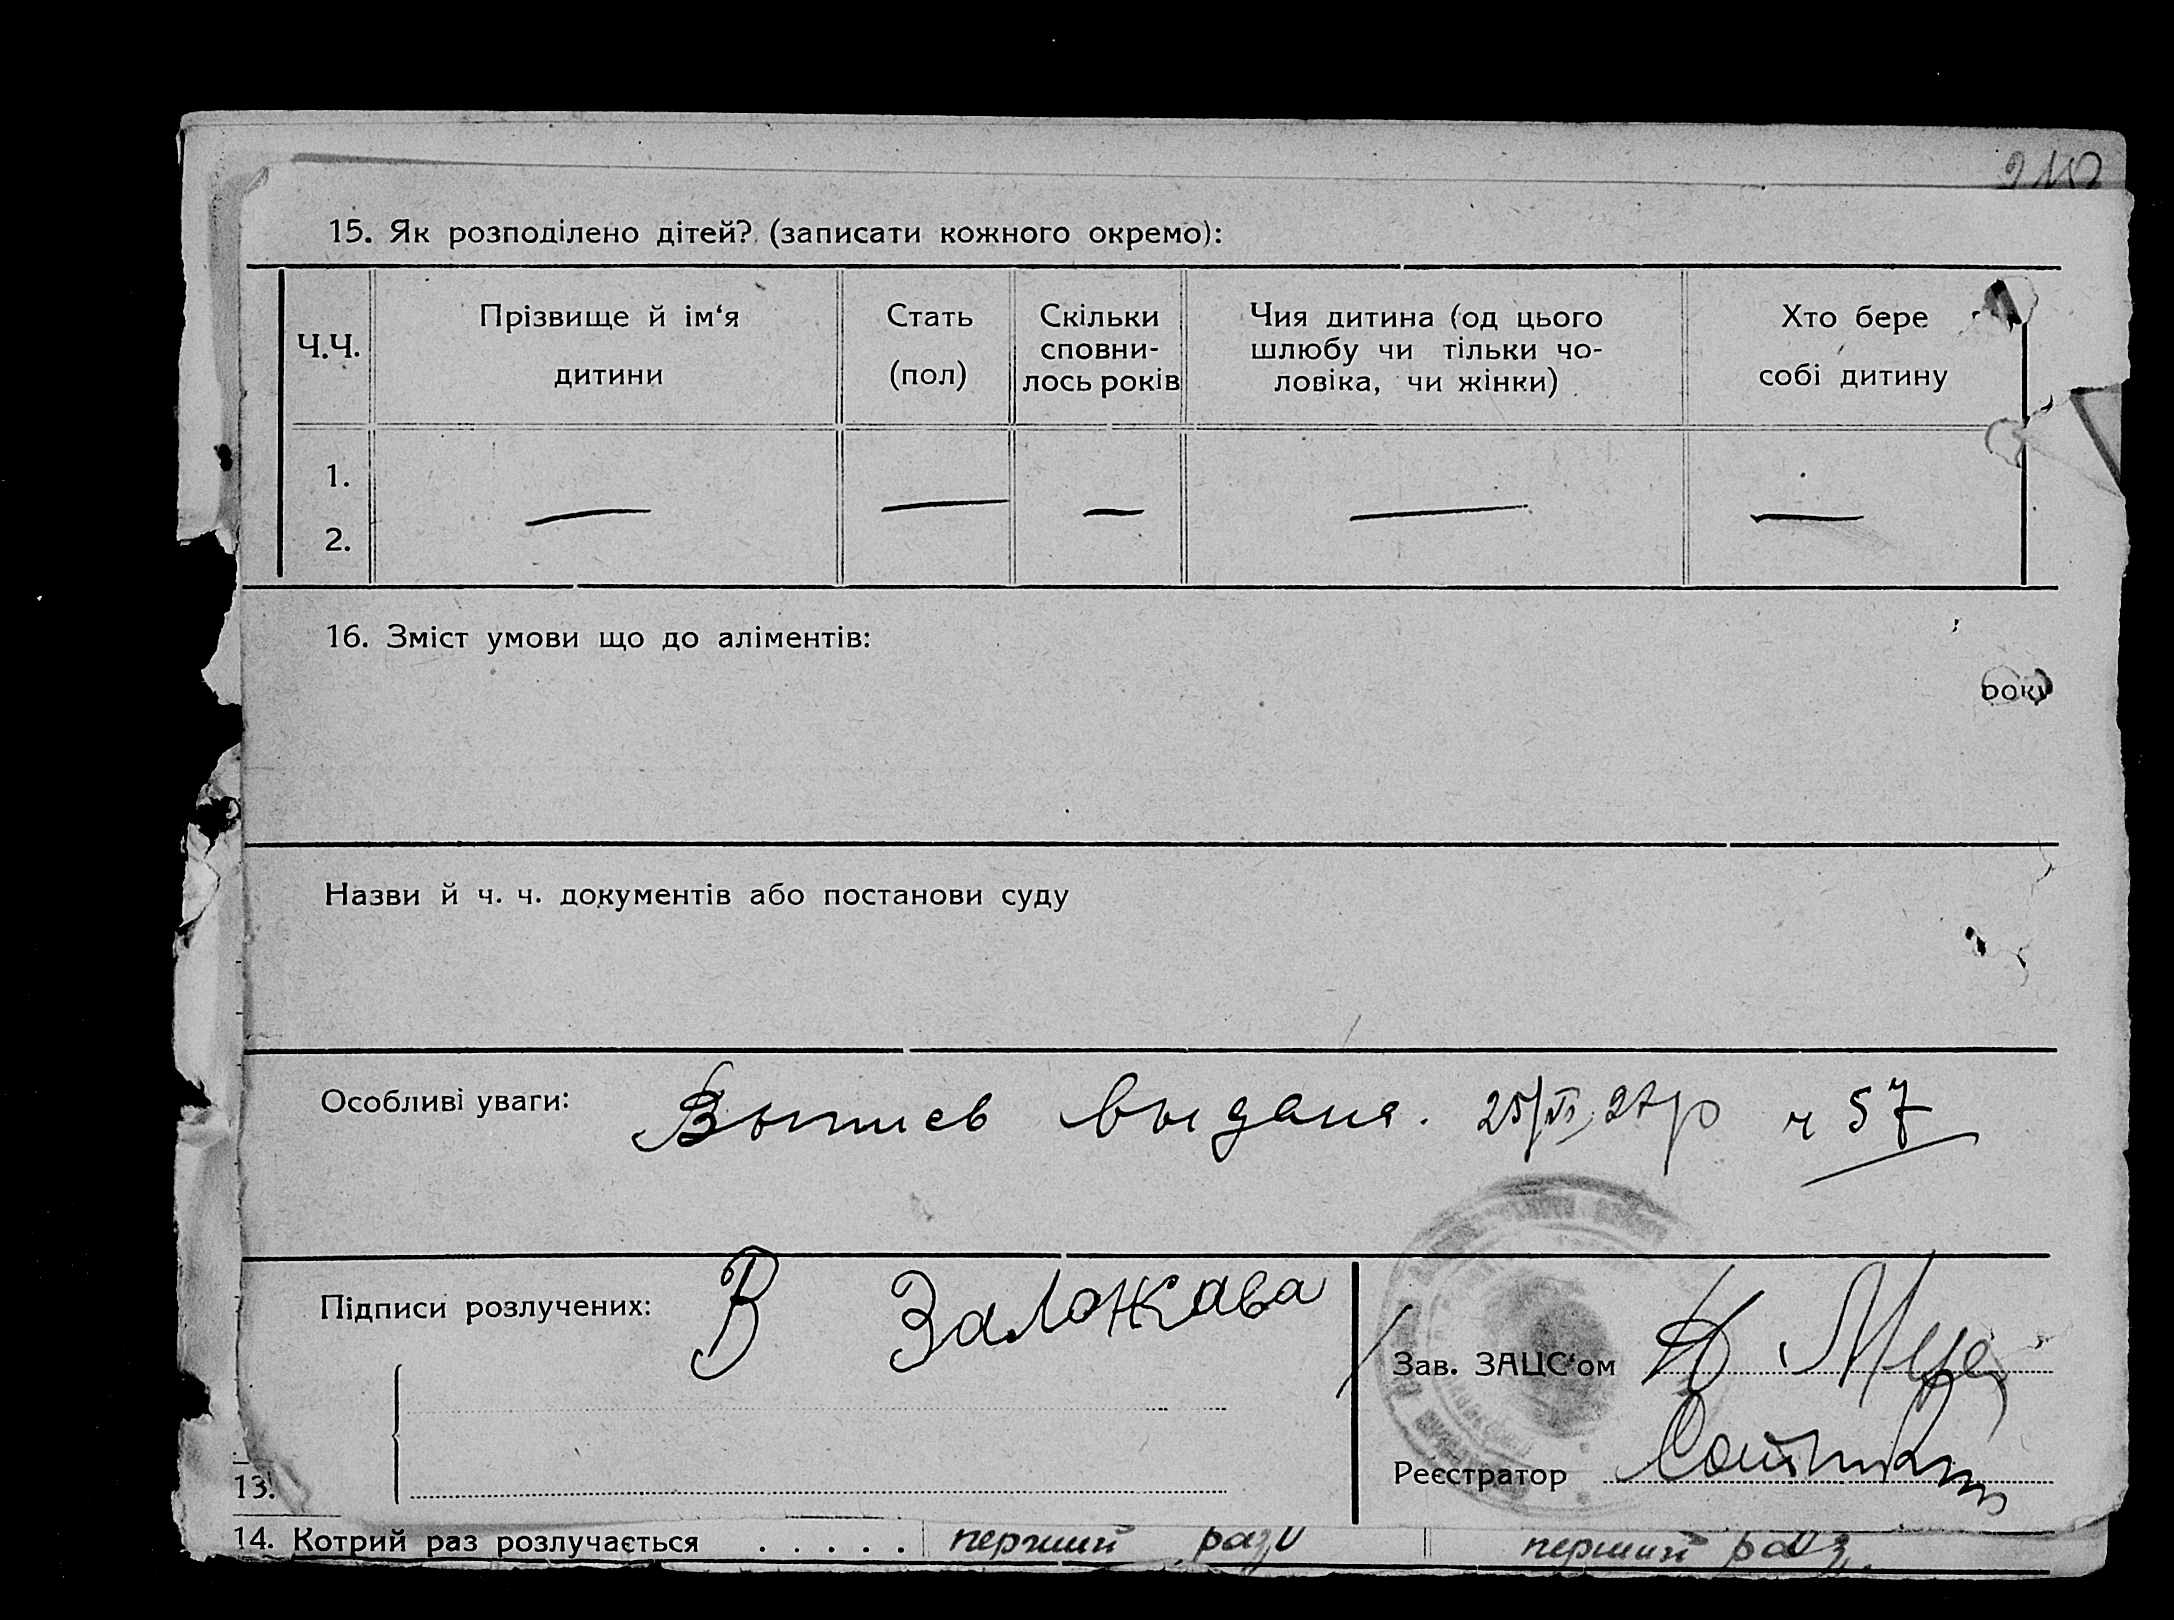 15. Як розподілено дітей? (записати кожного окремо):
Ч.Ч.
Прізвище й ім‘я
дитини
Стать
(пол)
Скільки
сповни-
лось років
Чия дитина (од цього
шлюбу чи тільки чо-
ловіка, чи жінки)
Хто бере
собі дитину
1.
2.
16. Зміст умови що до аліментів:
року
Назви й ч. ч. документів або постанови суду
Особливі уваги: Выпись выдана. 25/VI 27 р ч 57
Підписи розлучених: В Заложава
Зав. ЗАЦС‘ом
Реєстратор
13.
14. Котрий раз розлучається . . . . . перший раз перший раз